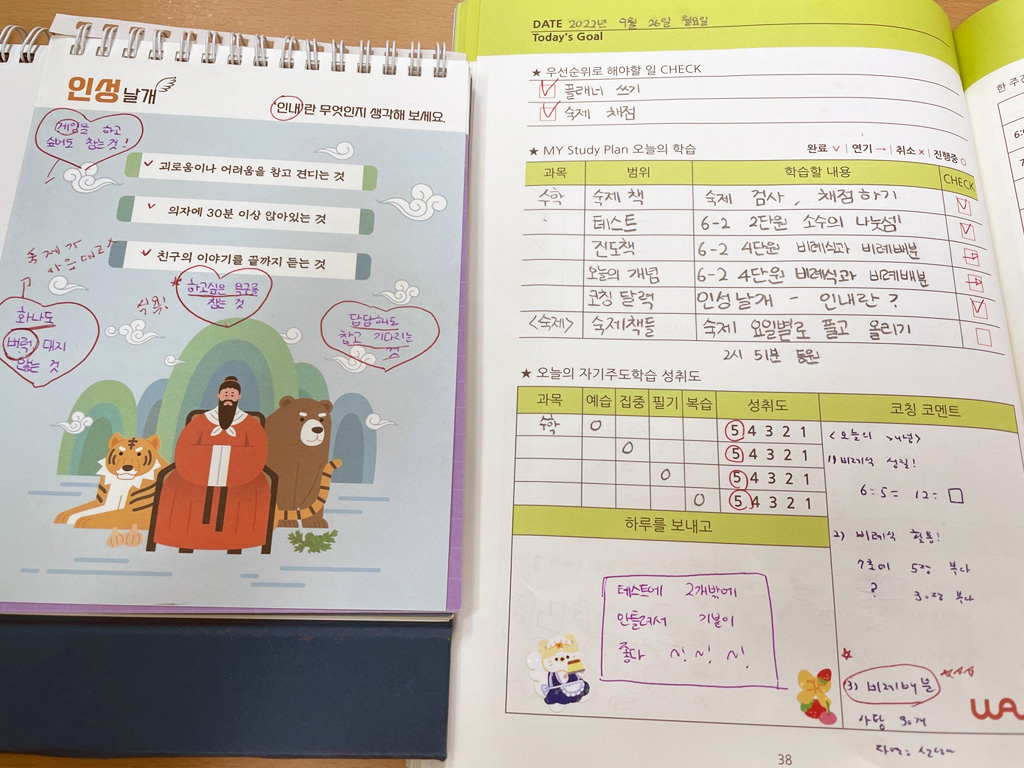 인성날개
'인내'란 무엇인지 생각해 보세요.
게임을 하고
싶어도 참는 것!
괴로움이나 어려움을 참고 견디는 것
의자에 30분 이상 앉아있는 것
친구의 이야기를 끝까지 듣는 것
숙제가
마음대로
식욕!
하고싶은 욕구를
참는 것
화나도
벼락 대지
않는 것
답답해도
참고 기다리는
것
DATE 2022년 9월 26일 월요일
Today's Goal
★ 우선순위로 해야할 일 CHECK
플래너 쓰기
숙제 채점
★ MY Study Plan 오늘의 학습
완료 ∨ | 연기 → | 취소 × | 진행중 ○
과목 범위 학습할 내용 CHECK
수학 숙제 책 숙제 검사, 채점하기
테스트 6-2 2단원 소수의 나눗셈!
진도책 6-2 4단원 비례식과 비례배분
오늘의 개념 6-2 4단원 비례식과 비례배분
코칭 달력 인성날개 - 인내란?
<숙제> 숙제책들 숙제 요일별로 풀고 올리기
2시 51분 등원
★ 오늘의 자기주도학습 성취도
과목 예습 집중 필기 복습 성취도 코칭 코멘트
수학 ○ 5 4 3 2 1
○ 5 4 3 2 1
○ 5 4 3 2 1
○ 5 4 3 2 1
<오늘의 개념>
1) 비례식 성질!
6:5 = 12:□
2) 비례식 활용!
?
3) 비례배분
사탕 30개
하루를 보내고
테스트에 2개밖에
안틀려서 기분이
좋다 ~! ~! ~!
38
한 주간